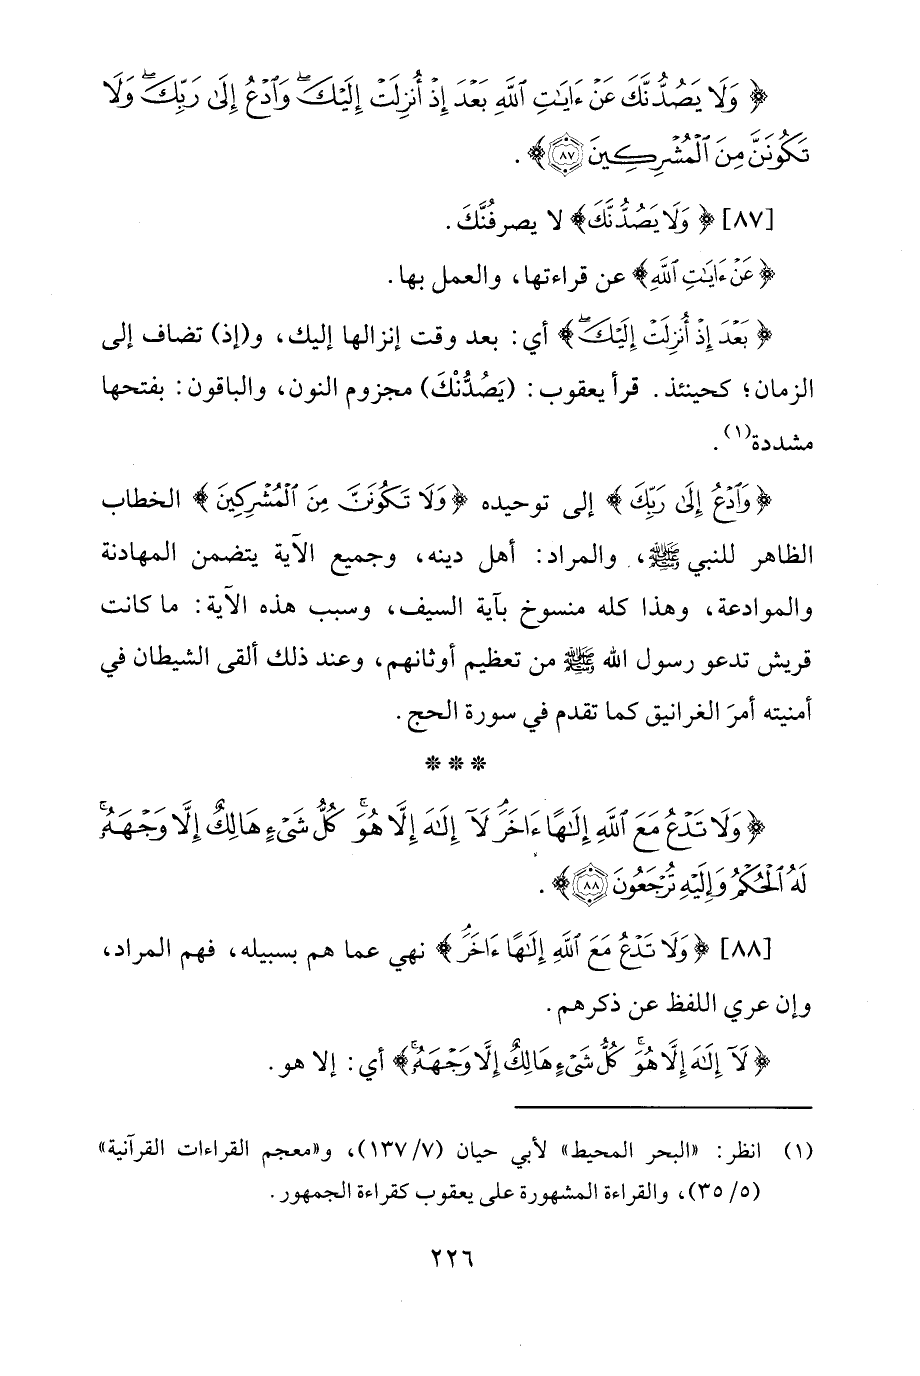 ﴿ وَلَا يَصُدُّنَّكَ عَنْ ءَايَٰتِ ٱللَّهِ بَعْدَ إِذْ أُنزِلَتْ إِلَيْكَ ۖ وَٱدْعُ إِلَىٰ رَبِّكَ ۖ وَلَا
تَكُونَنَّ مِنَ ٱلْمُشْرِكِينَ ٨٧ ﴾ .
[٨٧] ﴿ وَلَا يَصُدُّنَّكَ ﴾ لا يصرفُنَّكَ .
﴿ عَنْ ءَايَٰتِ ٱللَّهِ ﴾ عن قراءتها، والعمل بها .
﴿ بَعْدَ إِذْ أُنزِلَتْ إِلَيْكَ ۖ ﴾ أي: بعد وقت إنزالها إليك، و(إذ) تضاف إلى
الزمان؛ كحينئذ . قرأ يعقوب: (يَصُدُّنْكَ) مجزوم النون، والباقون: بفتحها
مشددة(١) .
﴿ وَٱدْعُ إِلَىٰ رَبِّكَ ﴾ إلى توحيده ﴿ وَلَا تَكُونَنَّ مِنَ ٱلْمُشْرِكِينَ ﴾ الخطاب
الظاهر للنبي ﷺ، والمراد: أهل دينه، وجميع الآية يتضمن المهادنة
والموادعة، وهذا كله منسوخ بآية السيف، وسبب هذه الآية: ما كانت
قريش تدعو رسول الله ﷺ من تعظيم أوثانهم، وعند ذلك ألقى الشيطان في
أمنيته أمرَ الغرانيق كما تقدم في سورة الحج .
* * *
﴿ وَلَا تَدْعُ مَعَ ٱللَّهِ إِلَٰهًا ءَاخَرَ ۘ لَآ إِلَٰهَ إِلَّا هُوَ ۚ كُلُّ شَىْءٍ هَالِكٌ إِلَّا وَجْهَهُۥ ۚ
لَهُ ٱلْحُكْمُ وَإِلَيْهِ تُرْجَعُونَ ٨٨ ﴾ .
[٨٨] ﴿ وَلَا تَدْعُ مَعَ ٱللَّهِ إِلَٰهًا ءَاخَرَ ۘ ﴾ نهي عما هم بسبيله، فهم المراد،
وإن عري اللفظ عن ذكرهم .
﴿ لَآ إِلَٰهَ إِلَّا هُوَ ۚ كُلُّ شَىْءٍ هَالِكٌ إِلَّا وَجْهَهُۥ ۚ ﴾ أي: إلا هو .
(١) انظر: «البحر المحيط» لأبي حيان (٧/ ١٣٧)، و«معجم القراءات القرآنية»
(٥/ ٣٥)، والقراءة المشهورة على يعقوب كقراءة الجمهور .
٢٢٦